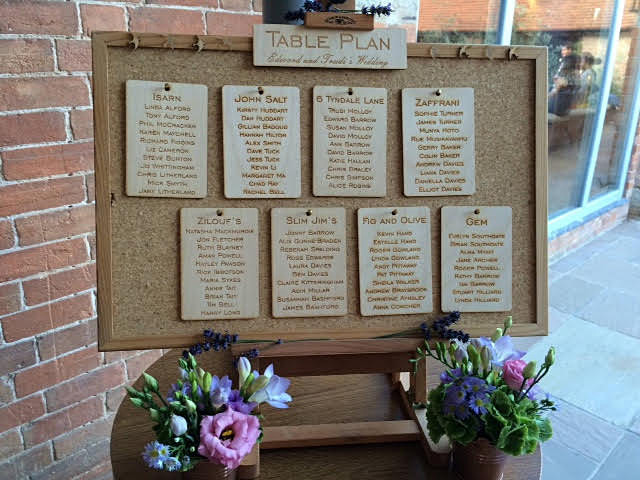 Table Plan
Edward and Trudi's Wedding
Isarn
Linda Alford
Tony Alford
Phil McCracken
Karen Maychell
Richard Figgins
Liz Cameron
Steve Burton
Jo Whittingham
Chris Litherland
Mick Smyth
Jane Litherland
John Salt
Kirsty Huddart
Dan Huddart
Gillian Badoud
Hannah Hilton
Alex Smith
Dave Tuck
Jess Tuck
Kevin Li
Margaret Ma
Chad Ray
Rachel Bell
6 Tyndale Lane
Trudi Molloy
Edward Barrow
Susan Molloy
David Molloy
Ann Barrow
David Barrow
Katie Hallan
Chris Drasey
Chris Simpson
Alice Rogins
Zaffrani
Sophie Turner
James Turner
Munya Hoto
Rue Musikavanhu
Gerry Baker
Colin Baker
Andrew Davies
Liana Davies
Daniella Davies
Elliot Davies
Zilouf's
Natasha Mackmurdie
Jon Fletcher
Ruth Blakney
Aman Powell
Hayley Pawson
Rick Ibbotson
Maria Sykes
Annie Tait
Brian Tait
Tim Bell
Hanny Long
Slim Jim's
Jonny Barrow
Alix Gunne-Braden
Rebekah Spalding
Ross Edwards
Laura Davies
Ben Davies
Claire Kitteringham
Adin Millar
Susannah Bashford
James Bashford
Fig and Olive
Kevin Hand
Estelle Hand
Roger Gowland
Lynda Gowland
Andy Pitaway
Pat Pitaway
Sheila Walker
Andrew Braybrook
Christine Ainsley
Anna Conchier
Gem
Evelyn Southgate
Brian Southgate
Alma Want
Jane Archer
Roger Powell
Kathy Barrow
Ida Barrow
Stuart Hilliard
Lynda Hilliard